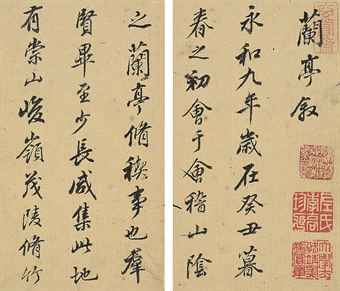 蘭亭敘
永和九年歲在癸丑暮
春之初會于會稽山陰
之蘭亭脩稧事也羣
賢畢至少長咸集此地
有崇山峻嶺茂陵脩竹